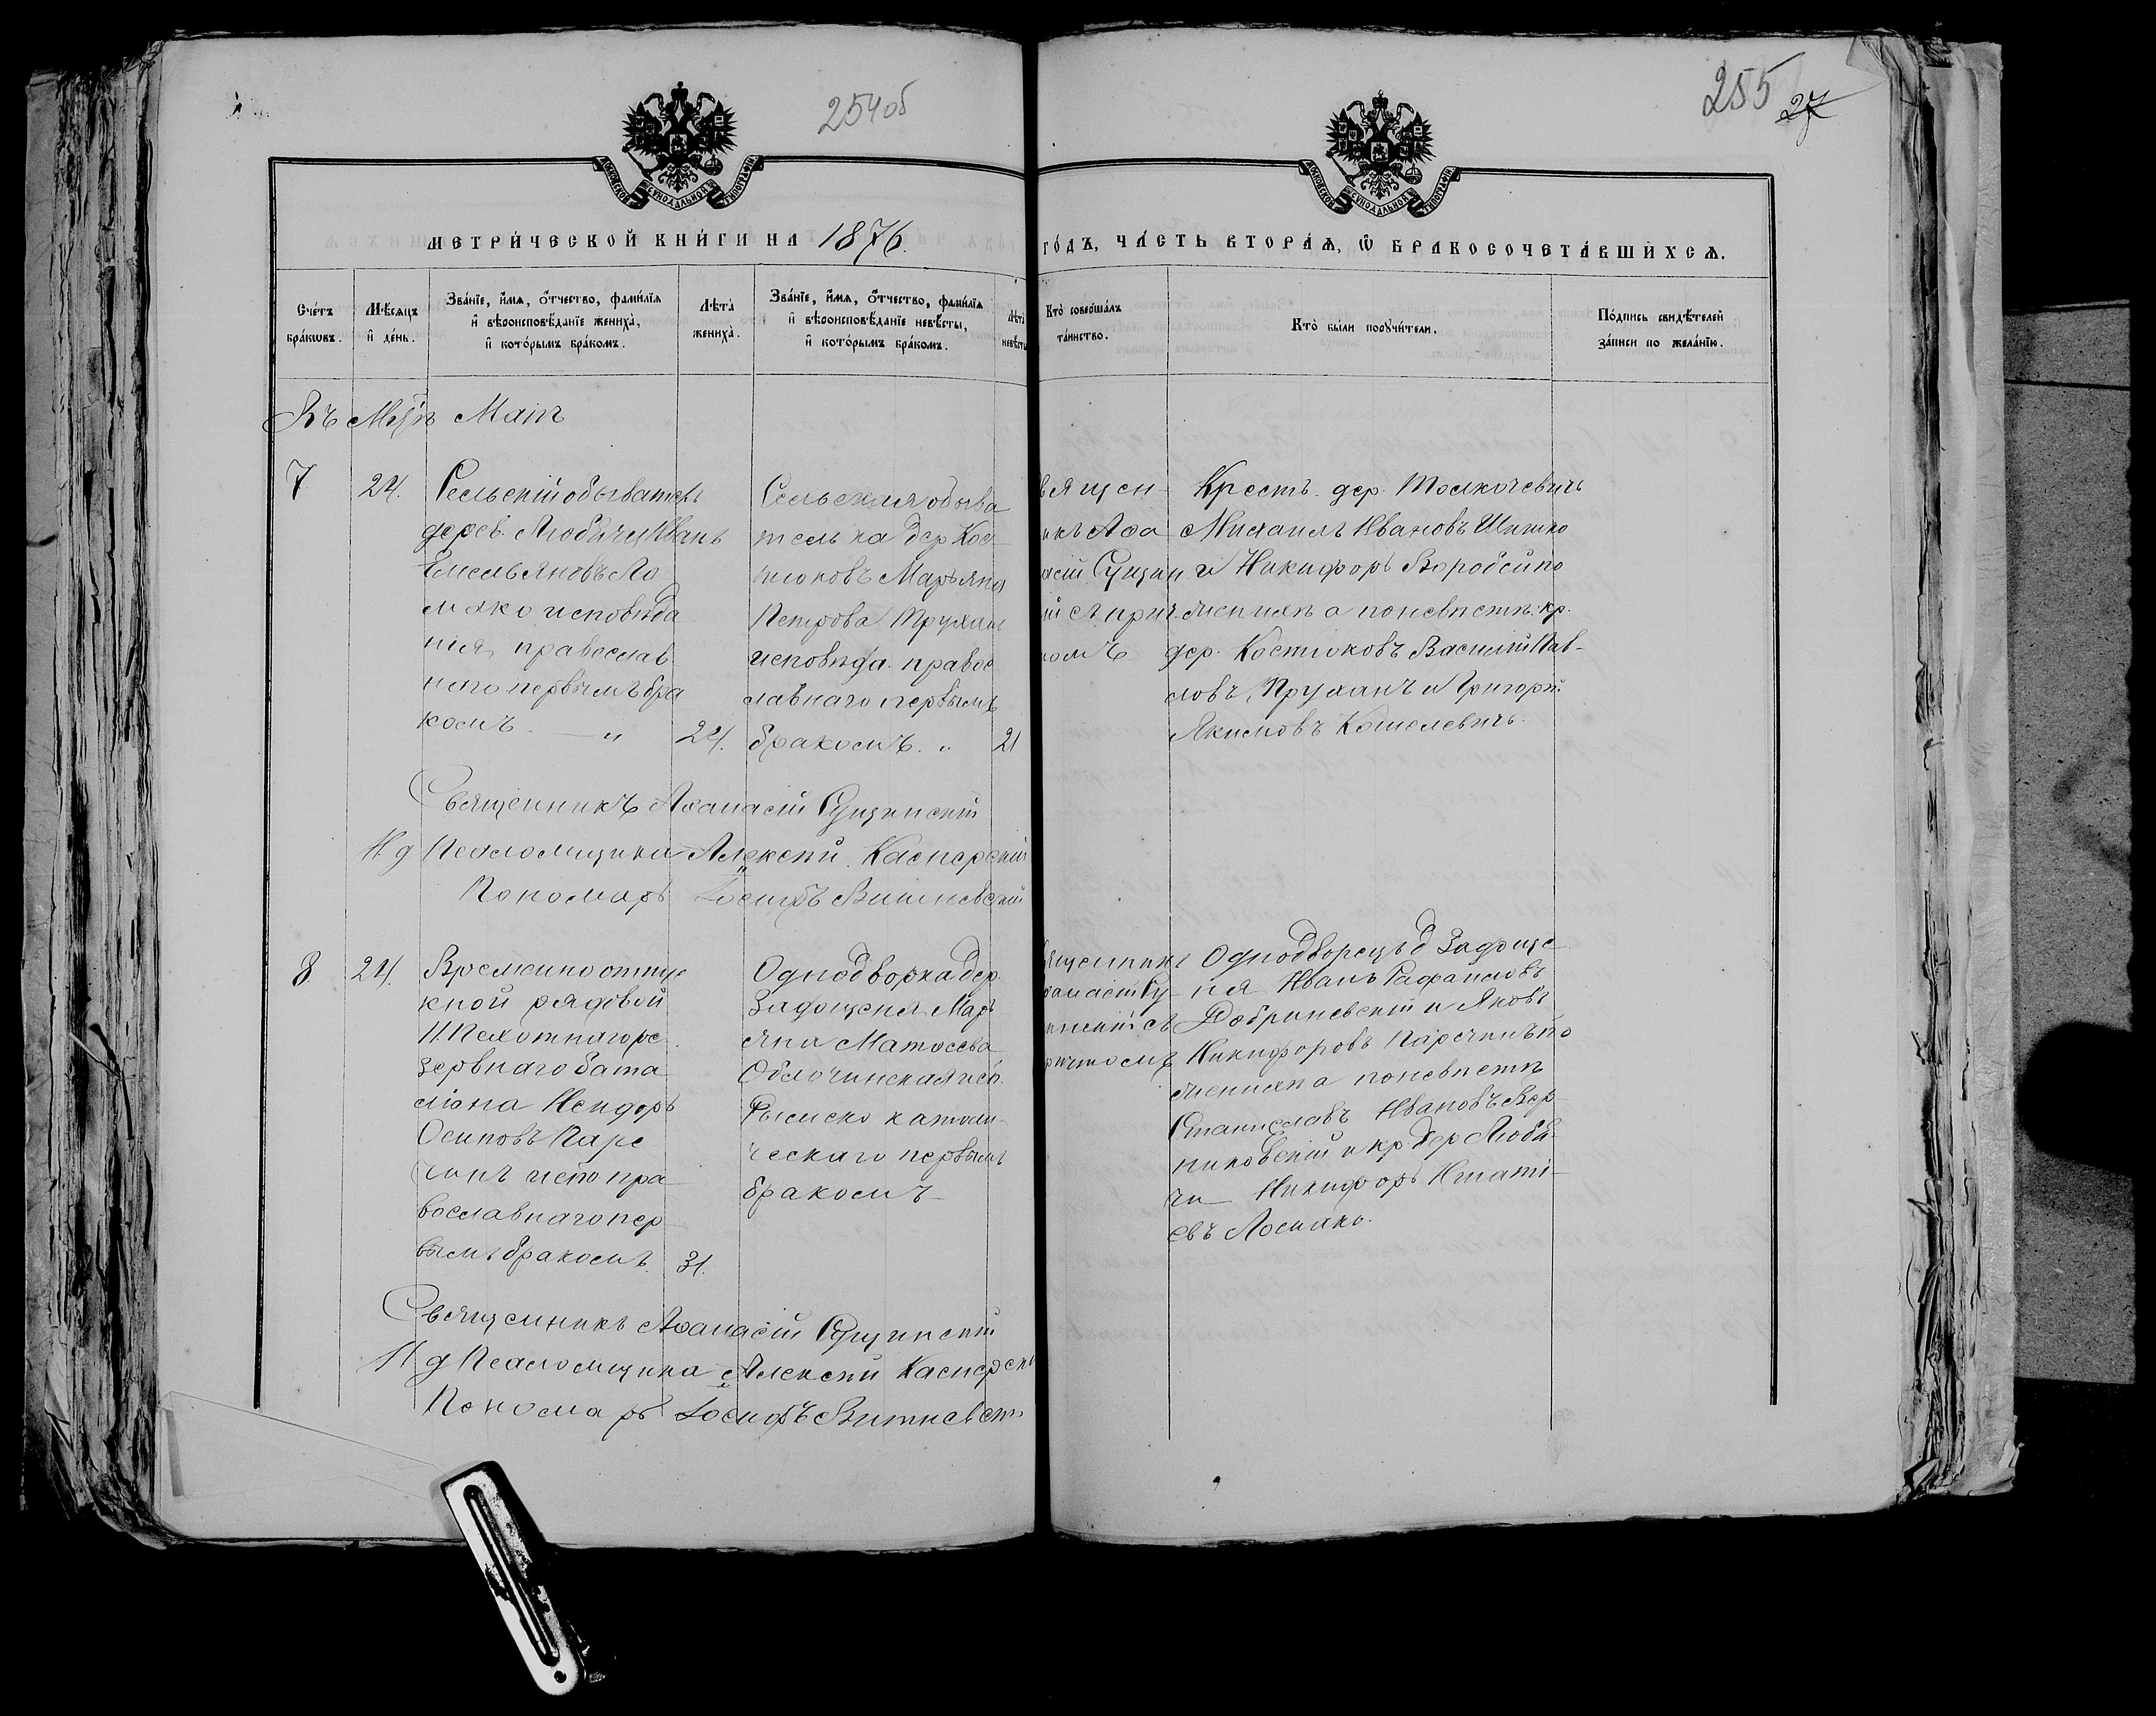 254 об
255 27
МОСКОВСКОЙ СѴНОДАЛЬНОЙ ТИПОГРАФІИ
МОСКОВСКОЙ СѴНОДАЛЬНОЙ ТИПОГРАФІИ
МЕТРИ́ЧЕСКОЙ КНИ́ГИ НА 1876.
ГО́ДЪ, ЧА́СТЬ ВТОРА́Ѧ, Ѽ БРАКОСОЧЕТА́ВШИХСѦ.
Сче́тъ
бра́кѡвъ.
Мѣ́сяцъ
и҆ де́нь.
Зва́нїе, и҆́мя, о҆́тчество, фами́лїя
и҆ вѣроисповѣ́данїе жениха̀,
и҆ кото́рымъ бра́комъ.
Лѣта̀
жениха̀.
Зва́нїе, и҆́мя, о҆́тчество, фами́лїя
и҆ вѣроисповѣ́данїе невѣ́сты,
и҆ кото́рымъ бра́комъ.
Лѣта̀
невѣ́сты
Кто̀ соверша́лъ
та́инство.
Кто̀ бы́ли порꙋчи́тели.
По́дпись свидѣ́телей
за́писи по жела́нїю.
Въ Мцѣ Маіѣ
7
24.
Сельскій обыватель
дерев. Любичи Иванъ
Емельяновъ Ло
мако исповѣда
нія православ
наго первымъ бра
комъ. — „
24.
Сельская обыва
телька дер Кос
тюковъ Марьяна
Петрова Трухан
исповѣда. правос
лавнаго первымъ
бракомъ. „
21
вящен
икъ Аѳа
асій Сущин
й съ прич
омъ
Крестъ. дер. Толкачевичъ
Михаилъ Ивановъ Шишко
и Никифоръ Воробей по
женихѣ а по невѣстѣ: кр.
дер. Костюковъ Василій Пав-
ловъ, Труханъ и Григорій
Якимовъ Кошелевичъ.
Священникъ Аѳанасій Сущинскій
И. д Псаломщика Алексѣй Касперскій
Пономарь Іосифъ Вишневскій
8.
24.
Временно отпус
кной рядовой
11. Пехотнаго ре
зервнаго бата
ліона Исидоръ
Осиповъ Паре
чинъ испо пра
вославнаго пер
вымъ бракомъ.
31.
Однодворка дер.
Задощеня Марь
яна Матѳеева
испо.
Рымско католи-
ческаго первымъ
бракомъ
ященникъ
ѳанасій Су
инскій съ
ричтомъ
Однодворецъ д Задоще
ня Иванъ Рафаиловъ
Добриневскій и Яковъ
Никифоровъ Паречинъ по
женихѣ а по невѣстѣ
Станиславъ Ивановъ Вер
никовскій и кр. дер Люби
чи — Никифоръ Игнаті-
евъ Ломако.
Священникъ Аѳанасій Сущинскій
И д Псаломщика Алексѣй Касперскі
Пономарь Іосифъ Вишневскій